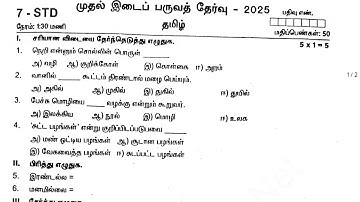 7 - STD
முதல் இடைப் பருவத் தேர்வு - 2025
பதிவு எண்.
நேரம்: 1.30 மணி
தமிழ்
மதிப்பெண்கள்: 50
I. சரியான விடையை தேர்ந்தெடுத்து எழுதுக.
5 x 1 = 5
1. நெறி என்னும் சொல்லின் பொருள்
அ) வழி ஆ) குறிக்கோள் இ) கொள்கை ஈ) அறம்
2. வானில் _____ கூட்டம் திரண்டால் மழை பெய்யும்.
1/2
அ) அகில் ஆ) முகில் இ) துகில் ஈ) துயில்
3. பேச்சு மொழியை _____ வழக்கு என்றும் கூறுவர்.
அ) இலக்கிய ஆ) நூல் இ) மொழி ஈ) உலக
4. 'சுட்ட பழங்கள்' என்று குறிப்பிடப்படுபவை _____
அ) மண் ஒட்டிய பழங்கள் ஆ) சூடான பழங்கள்
இ) வேகவைத்த பழங்கள் ஈ) சுடப்பட்ட பழங்கள்
II. பிரித்து எழுதுக.
5. இரண்டல்ல =
6. மனமில்லை =